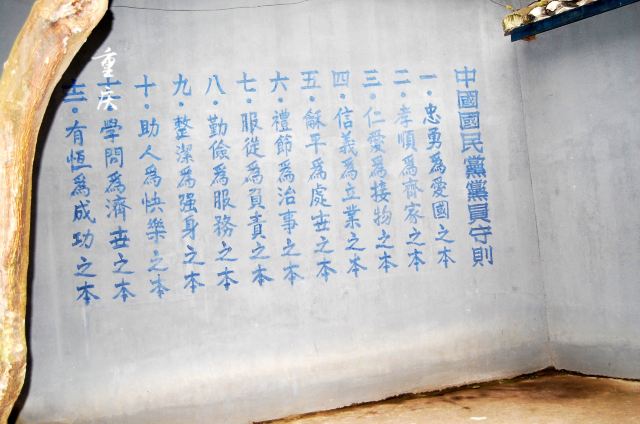 中國國民黨黨員守則
一・忠勇為愛國之本
二・孝順為齊家之本
三・仁愛為接物之本
四・信義為立業之本
五・龢平為處世之本
六・禮節為治事之本
七・服從為負責之本
八・勤儉為服務之本
九・整潔為强身之本
十・助人為快樂之本
学問為濟世之本
有恆為成功之本
重庆